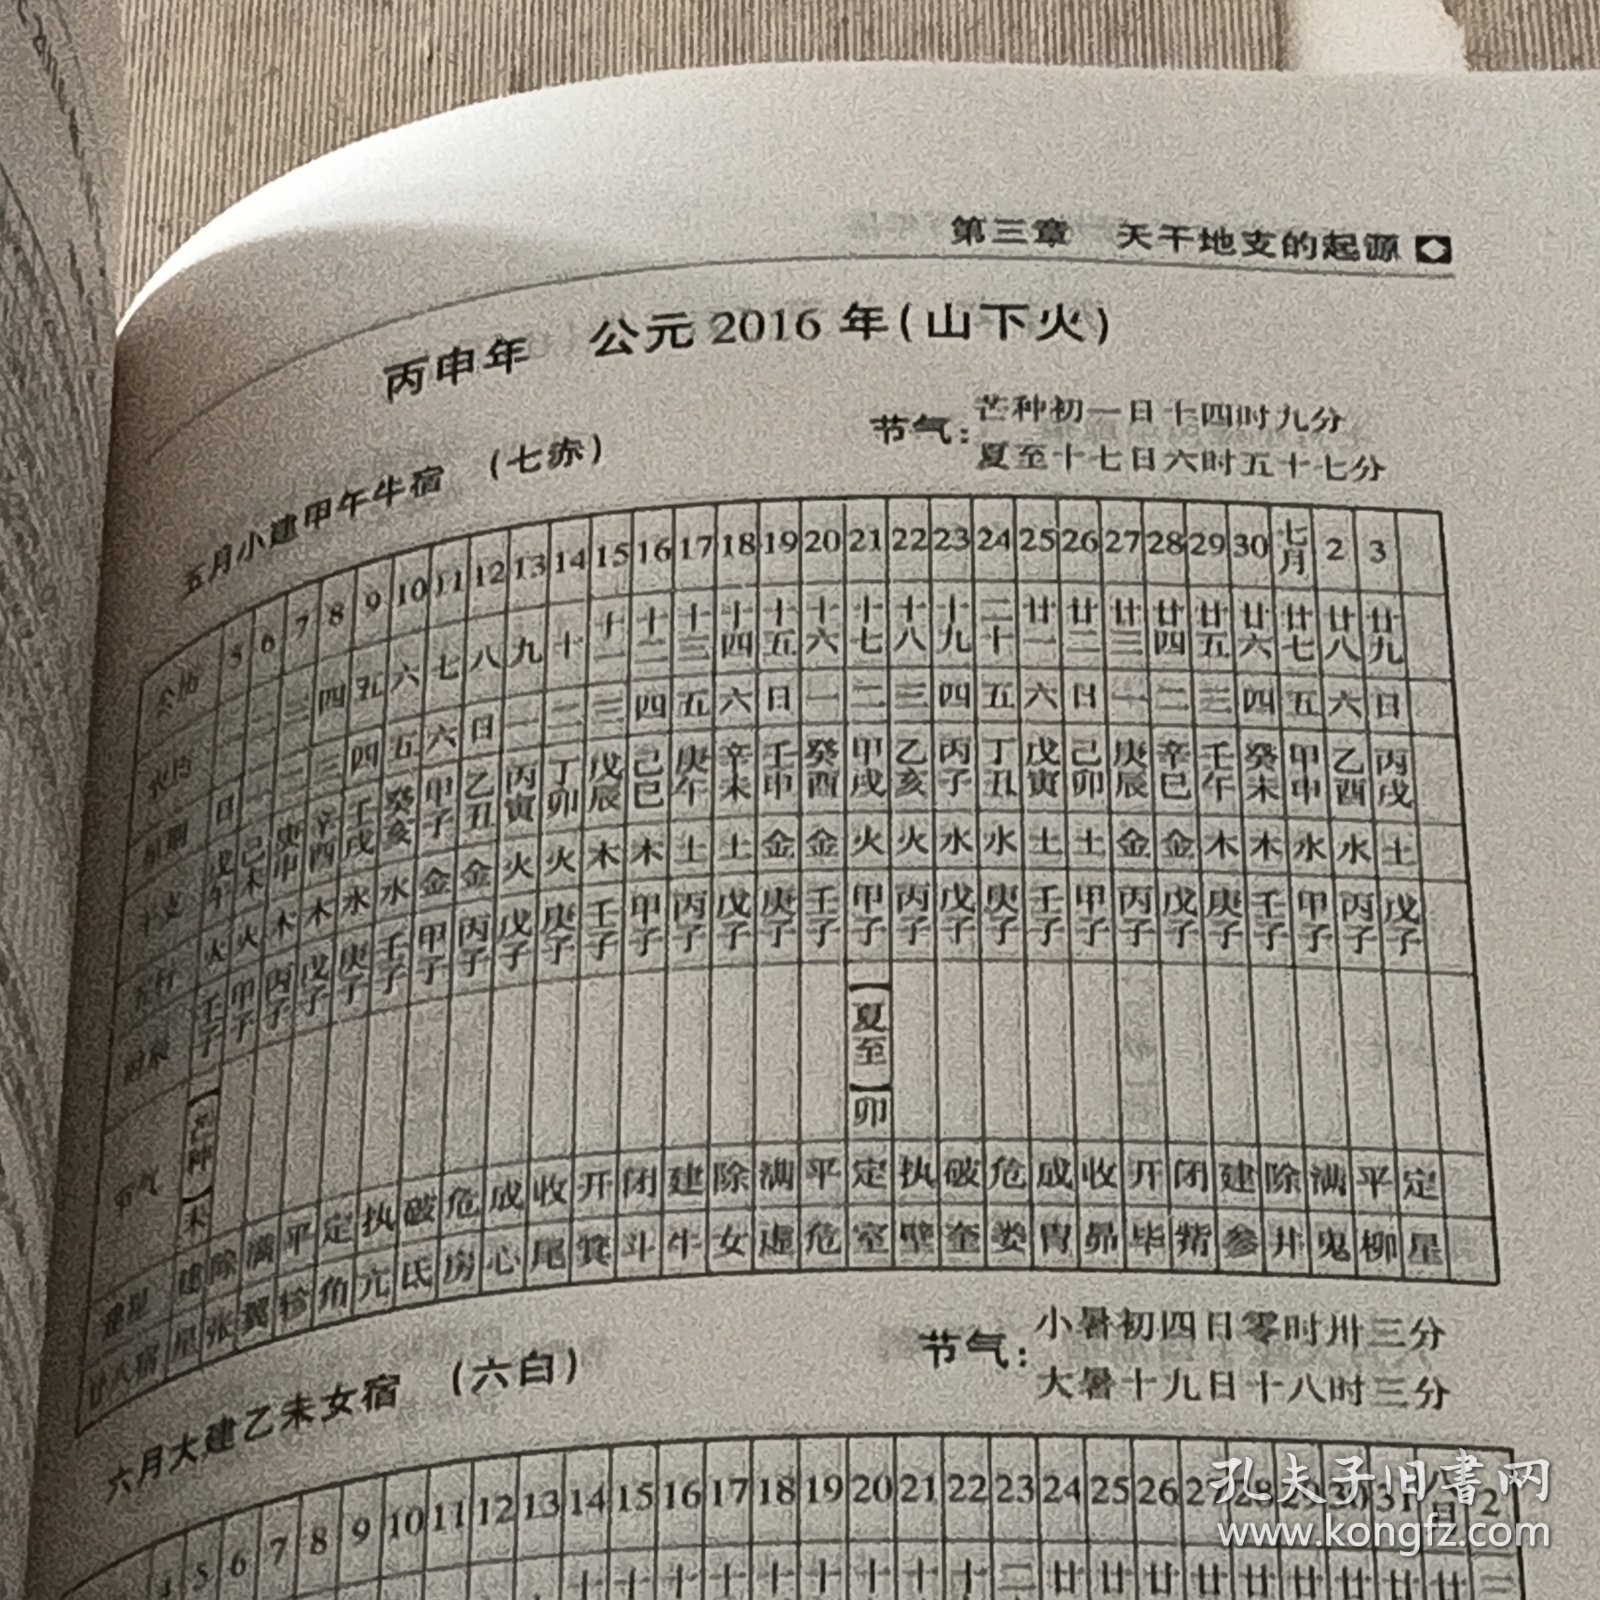 第三章 天干地支的起源
丙申年 公元2016年(山下火)
五月小建甲午牛宿 (七赤)
节气:芒种初一日十四时九分
夏至十七日六时五十七分
公历 5 6 7 8 9 10 11 12 13 14 15 16 17 18 19 20 21 22 23 24 25 26 27 28 29 30 七月 2 3
农历 初一 二 三 四 五 六 七 八 九 十 十一 十二 十三 十四 十五 十六 十七 十八 十九 二十 廿一 廿二 廿三 廿四 廿五 廿六 廿七 廿八 廿九
星期 日 一 二 三 四 五 六 日 一 二 三 四 五 六 日 一 二 三 四 五 六 日 一 二 三 四 五 六 日
干支 戊午 己未 庚申 辛酉 壬戌 癸亥 甲子 乙丑 丙寅 丁卯 戊辰 己巳 庚午 辛未 壬申 癸酉 甲戌 乙亥 丙子 丁丑 戊寅 己卯 庚辰 辛巳 壬午 癸未 甲申 乙酉 丙戌
五行 火 火 木 木 水 水 金 金 火 火 木 木 土 土 金 金 火 火 水 水 土 土 金 金 木 木 水 水 土
时辰 壬子 甲子 丙子 戊子 庚子 壬子 甲子 丙子 戊子 庚子 壬子 甲子 丙子 戊子 庚子 壬子 甲子 丙子 戊子 庚子 壬子 甲子 丙子 戊子 庚子 壬子 甲子 丙子 戊子
节气 【芒种】未 【夏至】卯
建星 建 除 满 平 定 执 破 危 成 收 开 闭 建 除 满 平 定 执 破 危 成 收 开 闭 建 除 满 平 定
廿八宿 星 张 翼 轸 角 亢 氐 房 心 尾 箕 斗 牛 女 虚 危 室 壁 奎 娄 胃 昴 毕 觜 参 井 鬼 柳 星
六月大建乙未女宿 (六白)
节气:小暑初四日零时卅三分
大暑十九日十八时三分
4 5 6 7 8 9 10 11 12 13 14 15 16 17 18 19 20 21 22 23 24 25 26 27 28 29 30 31 八月 2
孔夫子旧书网
www.kongfz.com